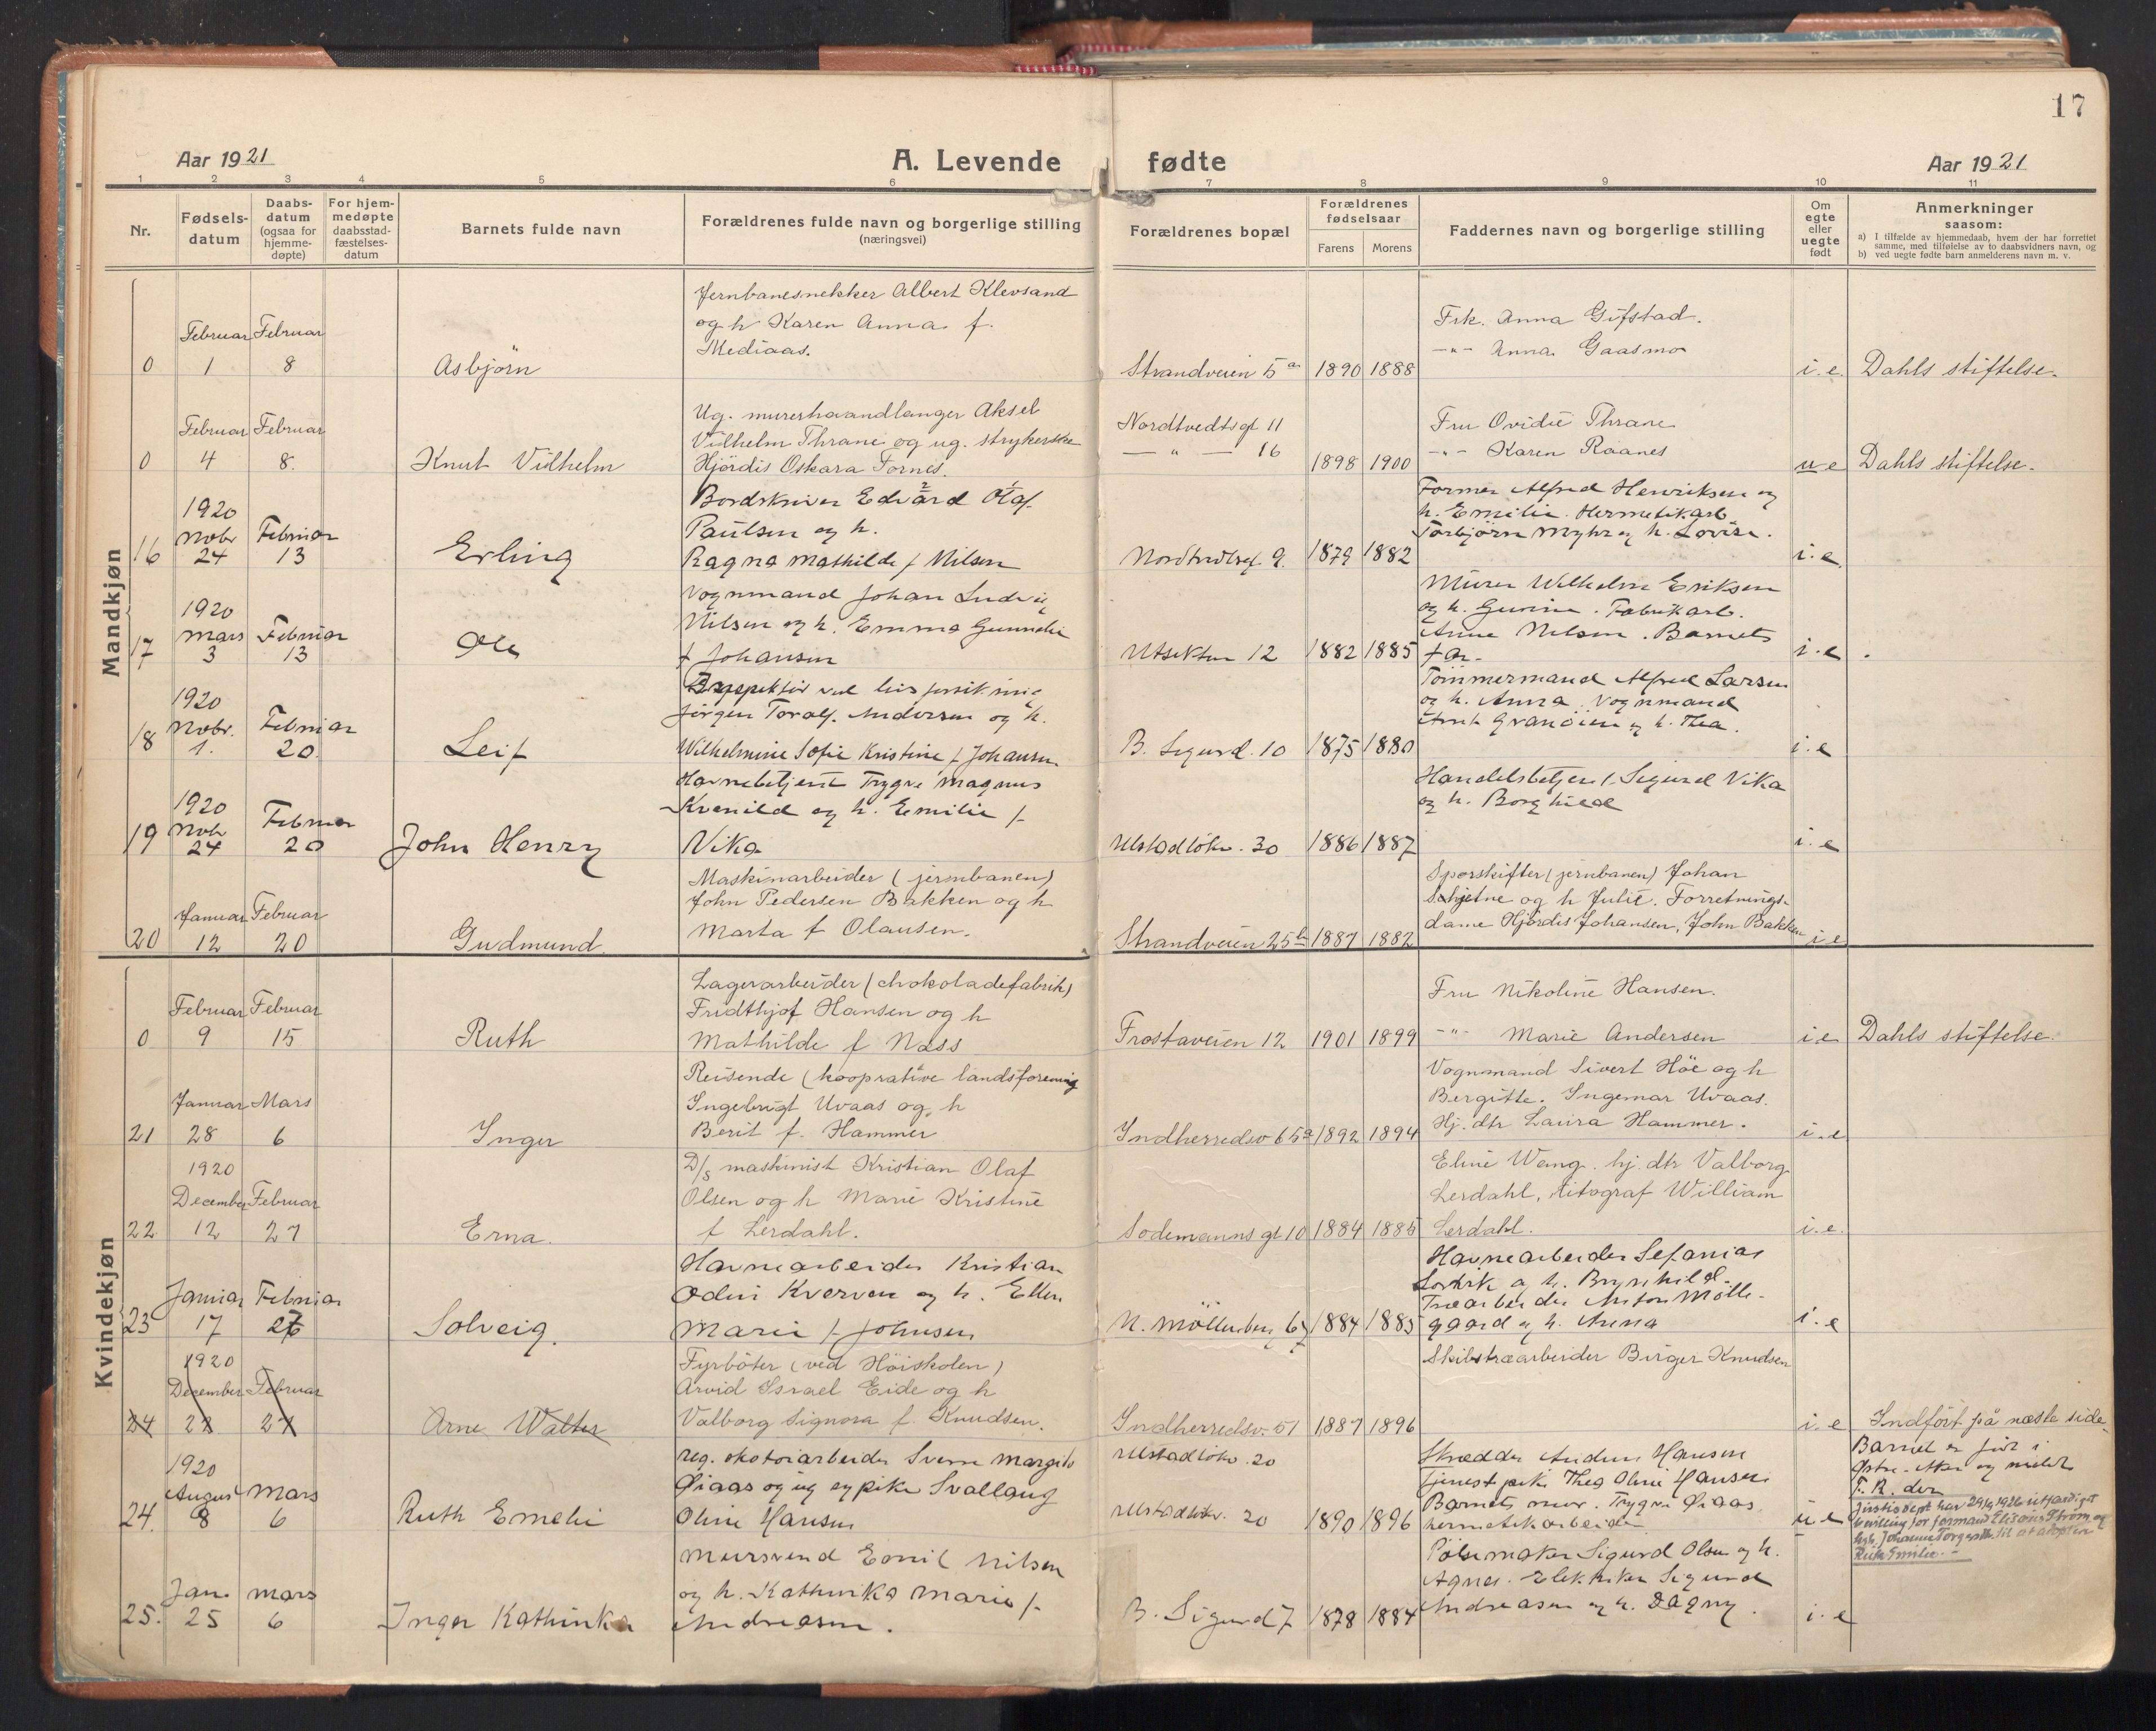 17
Aar 1921
A. Levende
fødte
Aar 1921
1 2 3 4 5 6 7 8 9 10 11
Nr.
Fødsels-
datum
Daabs-
datum
(ogsaa for
hjemme-
døpte)
For hjem-
medøpte
daabsstad-
fæstelses-
datum
Barnets fulde navn
Forældrenes fulde navn og borgerlige stilling
(næringsvei)
Forældrenes bopæl
Forældrenes
fødselsaar
Farens Morens
Faddernes navn og borgerlige stilling
Om
egte
eller
uegte
født
Anmerkninger
saasom:
a) I tilfælde av hjemmedaab, hvem der har forrettet
samme, med tilføielse av to daabsvidners navn, og
b) ved uegte fødte barn anmelderens navn m. v.
Mandkjøn
0
Februar
1
Februar
8
Asbjörn
Jernbanesnekker Albert Klevsand
og h Karen Anna f.
Mediaas.
Strandveien 5a
1890 1888
Frk. Anna Gifstad.
-"- Anna Gaasmo
i.e.
Dahls stiftelse.
0
Februar
4
Februar
8.
Knut Vilhelm
Ug. murerhaandlanger Aksel
Vilhelm Thrane og ug. strykerske
Hjördis Oskara Fornes.
Nordtvedtsgt 11
— " — 16
1898 1900
Fru Ovidie Thrane
-"- Karen Raanes
u e
Dahls stiftelse.
16
1920
Nobr
24
Februar
13
Erling
Bordskriver Edvard Olaf
Paulsen og h.
Ragna Mathilde f Nilsen
9.
1879 1882
Former Alfred Henriksen og
h. Emilie. Hermetikarb
Torbjørn Myhr og h. Lovise.
i.e.
17
1920
Mars
3
Februar
13
Ole
Vognmand Johan Ludvig
Nilsen og h. Emma
f Johansen
Utsikten 12
1882 1885
Murer Wilhelm Eriksen
og h. Gurine. Fabrikarb.
Anne Nilsen. Barnets
far
i.e.
18
1920
Nobr.
1.
Februar
20.
Leif
Jörgen Toralf. Andersen og h.
Wilhelmine Sofie Kristine f Johansen
B. Sigurd. 10
1875 1880
Tömmermand Alfred Larsen
og h. Anna. Vognmand
og h. Thea.
i.e
19
1920
Nobr
24
Februar
20
John Henry
Havnebetjent Trygve Magnus
Kvenild og h. Emilie f.
Vika
30
1886 1887
Handelsbetjent Sigurd Vika
og h. Borghild
i.e
20
Januar
12
Februar
20
Gudmund
Maskinarbeider (jernbanen)
John Pedersen Bakken og h
Marta f Olausen.
Strandveien 25b
1887 1882
Sporskifter (jernbanen) Johan
Schjetne og h Julie. Forretnings-
dame Hjördis Johansen, John Bakken
i.e
Kvindekjøn
0
Februar
9
Februar
15
Ruth
Lagerarbeider (chokoladefabrik)
Fridthjof Hansen og h
Mathilde f Næss
Frostaveien 12
1901 1899
Fru Nikoline Hansen.
-"- Marie Andersen
i e
Dahls stiftelse.
21
Januar
28
Mars
6
Inger
Reisende (kooprative landsforening
Ingebrigt Uvaas og h
Berit f. Hammer
Indherredsv 65a
1892 1894
Vognmand Sivert Höe og h
Bergitte. Ingemar Uvaas.
Hj. dtr Laura Hammer.
i.e
22
1920
December
12
Februar
27
Erna.
D/s maskinist Kristian Olaf
Olsen og h Marie Kristine
f Lerdahl.
Sodemannsgt 10
1884 1885
Eline Wang. hj. dtr Valborg
Lerdahl, litograf William
Lerdahl.
i.e.
23
Januar
17
Februar
Solveig.
Havnearbeider Kristian
Odin Kverven og h. Ellen
Marie f. Johnsen
1884 1885
Havnearbeider Sefanias
og h. Brynhild.
Træarbeider Anton Mölle-
gaard og h. Anna
i.e
24
1920
December
28
Februar
27
Arne Walter
Fyrböter (ved Höiskolen)
Arvid Israel Eide og h
Valborg Signora f. Knudsen.
Indherredsv. 51
1887 1896
Skibstræarbeider Birger Knudsen
i.e
Indfört på næste side.
24.
1920
August
8
Mars
6
Ruth Emelie
Øiaas og ug sypike Svallaug
Oline Hansen
20
20
1890 1896
Skrædder Anders Hansen
Tjenestpike Thea Oline Hansen
Barnets mor. Trygve Øiaas
hermetikarbeider
u e
Barnet er født i
Justisdept har 29/4 1926 utfærdiget
bevilling for formand Elisæus Strøm og
til at adoptere
Ruth Emilie. -
25.
Jan.
25
Mars
6
Inger Kathinka
Mursvend Emil Nilsen
og h. Kathinka Marie f.
Andreasen.
B. Sigurd 7
1878 1884
Pölsemaker Sigurd Olsen og h.
Agnes. Elektriker Sigurd
Andreasen og h. Dagny.
i.e